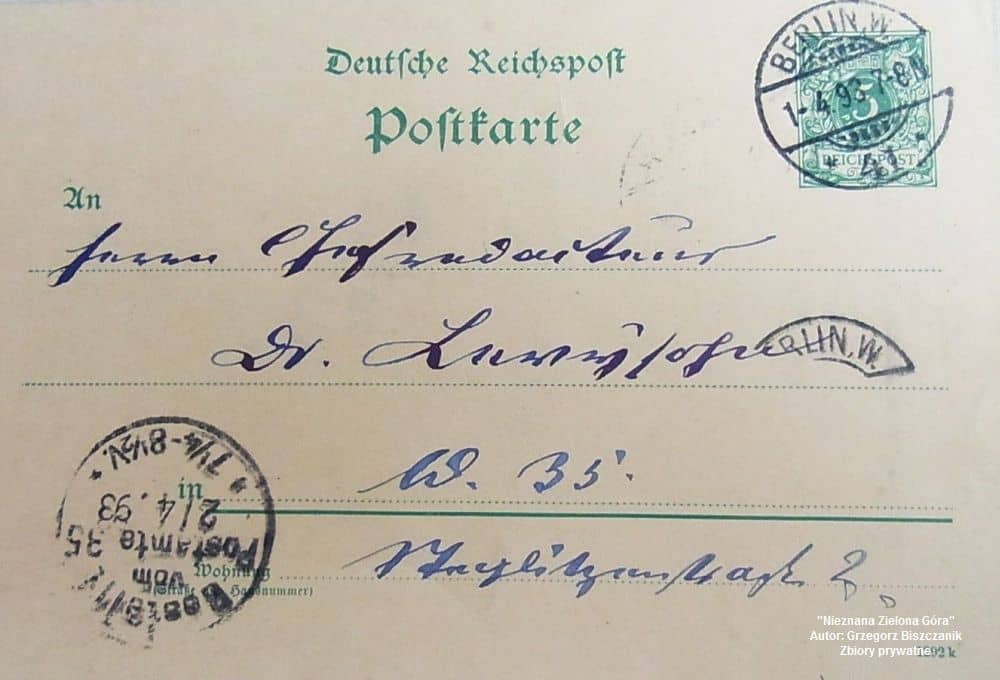 Deutsche Reichspost
Postkarte
BERLIN, W.
1. 4. 93. 7-8 N
* 41 *
5
REICHSPOST
An
Herrn Chefredacteur
Dr. Levysohn
BERLIN, W.
in W. 35.
Wohnung Steglitzerstraße 2
(Straße und Hausnummer)
Bestellt
vom
Postamte 35
2/4. 93
* 7¼-8½V. *
"Nieznana Zielona Góra"
Autor: Grzegorz Biszczanik
Zbiory prywatne